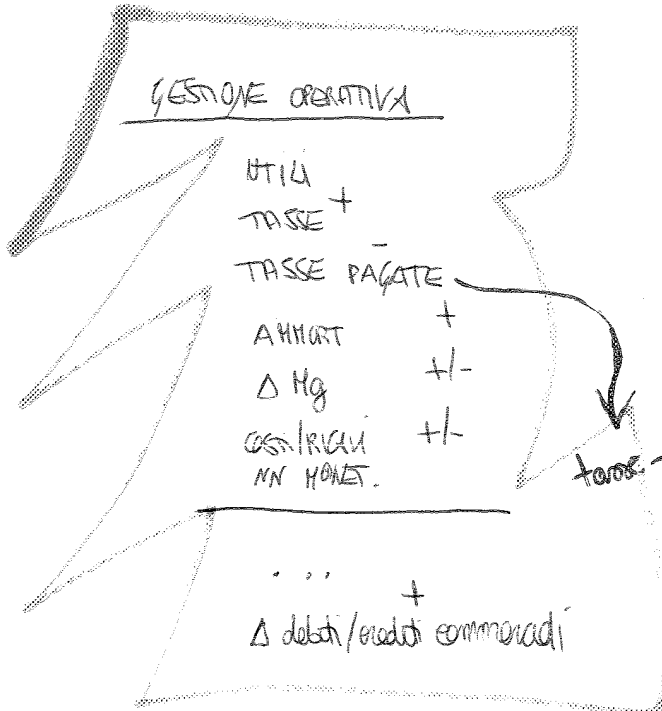 GESTIONE OPERATIVA
UTILI
TASSE +
TASSE PAGATE -
AMMORT +
Δ Mg +/-
COSTI/RICAVI +/-
NN MONET.
tasse -
. . .
Δ debiti/crediti commerciali +